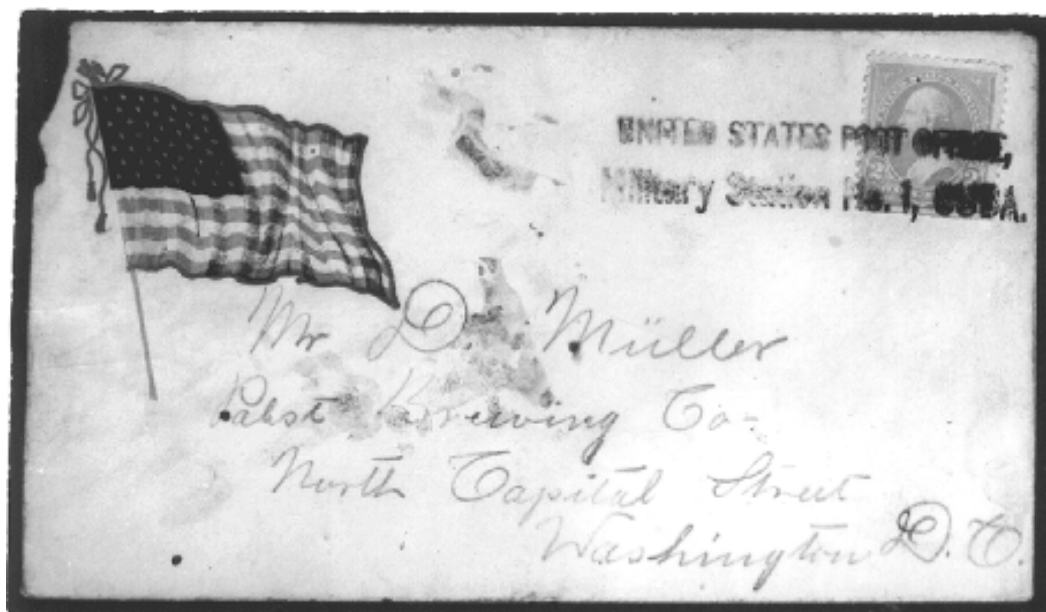 UNITED STATES POST OFFICE,
Military Station No. 1, CUBA.
Mr D. Müller
Pabst Brewing Co-
North Capital Street
Washington D. C.